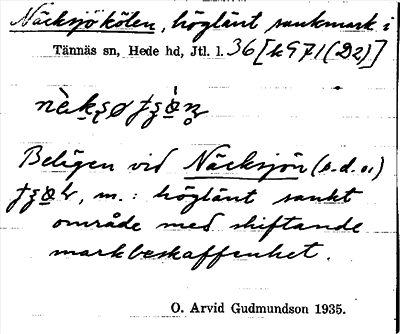 Näcksjökölen, höglänt sankmark i
Tännäs sn, Hede hd, Jtl. l. 36 [k971(D2)]
Belägen vid Näcksjön (s. d. o.)
m.: höglänt sankt
område med skiftande
markbeskaffenhet.
O. Arvid Gudmundson 1935.